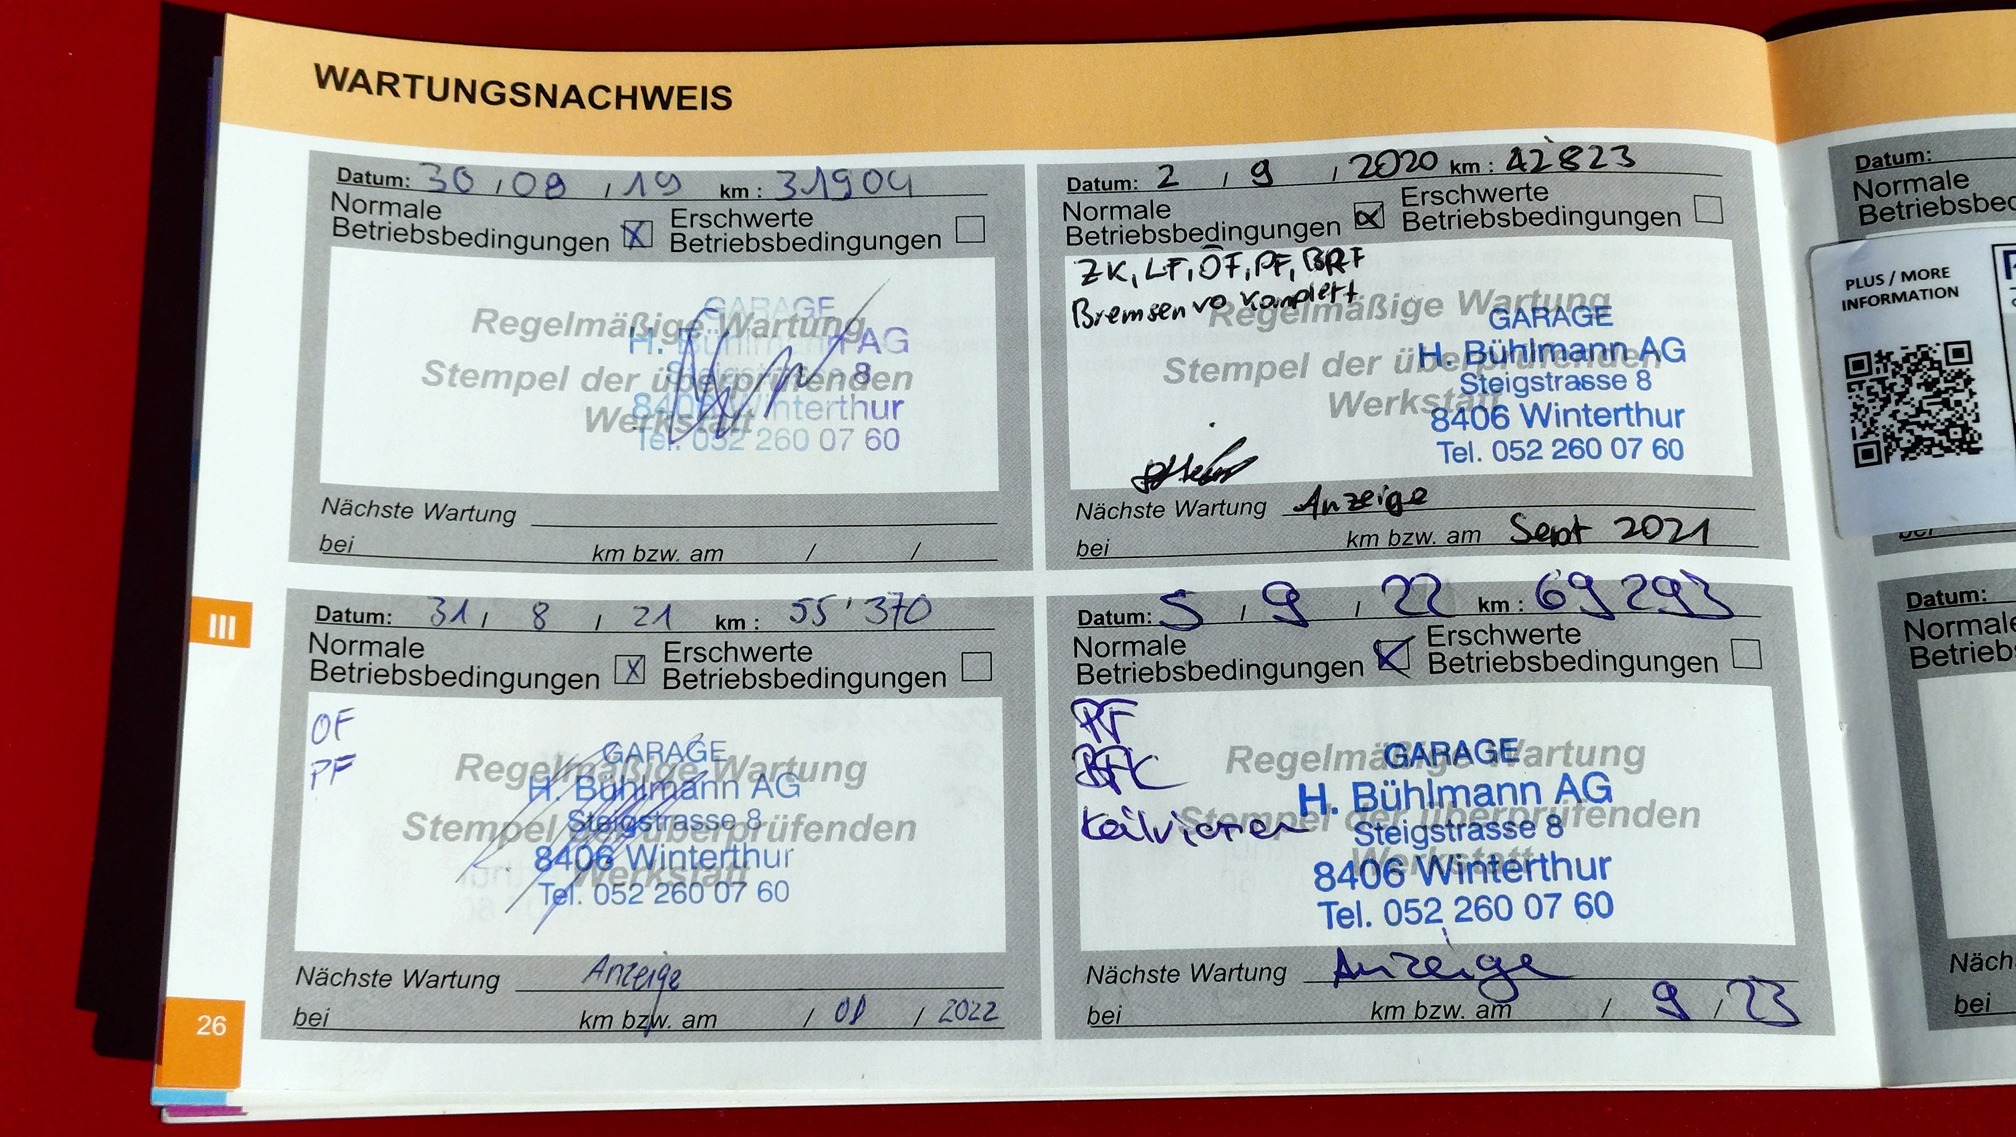 WARTUNGSNACHWEIS
Datum: 30 / 08 / 19 km : 31904
Normale
Betriebsbedingungen X Erschwerte
Betriebsbedingungen
Regelmäßige Wartung
Stempel der überprüfenden
Werkstatt
GARAGE
H. Bühlmann AG
Steigstrasse 8
8406 Winterthur
Tel. 052 260 07 60
Nächste Wartung
bei km bzw. am / /
Datum: 2 / 9 / 2020 km : 42'823
Normale
Betriebsbedingungen X Erschwerte
Betriebsbedingungen
ZK, LF, ÖF, PF, BRF
Bremsen vo komplett
Regelmäßige Wartung
Stempel der überprüfenden
Werkstatt
GARAGE
H. Bühlmann AG
Steigstrasse 8
8406 Winterthur
Tel. 052 260 07 60
Nächste Wartung Anzeige
bei km bzw. am Sept 2021
Datum: 31 / 8 / 21 km : 55'370
Normale
Betriebsbedingungen X Erschwerte
Betriebsbedingungen
OF
PF
Regelmäßige Wartung
Stempel der überprüfenden
Werkstatt
GARAGE
H. Bühlmann AG
Steigstrasse 8
8406 Winterthur
Tel. 052 260 07 60
Nächste Wartung Anzeige
bei km bzw. am / 08 / 2022
Datum: 5 / 9 / 22 km : 69293
Normale
Betriebsbedingungen X Erschwerte
Betriebsbedingungen
PF
Regelmäßige Wartung
Stempel der überprüfenden
Werkstatt
GARAGE
H. Bühlmann AG
Steigstrasse 8
8406 Winterthur
Tel. 052 260 07 60
Nächste Wartung Anzeige
bei km bzw. am / 9 / 23
III
26
Datum:
Normale
Betriebsbed
PLUS / MORE
INFORMATION
Datum:
Normale
Betriebs
Näch
bei